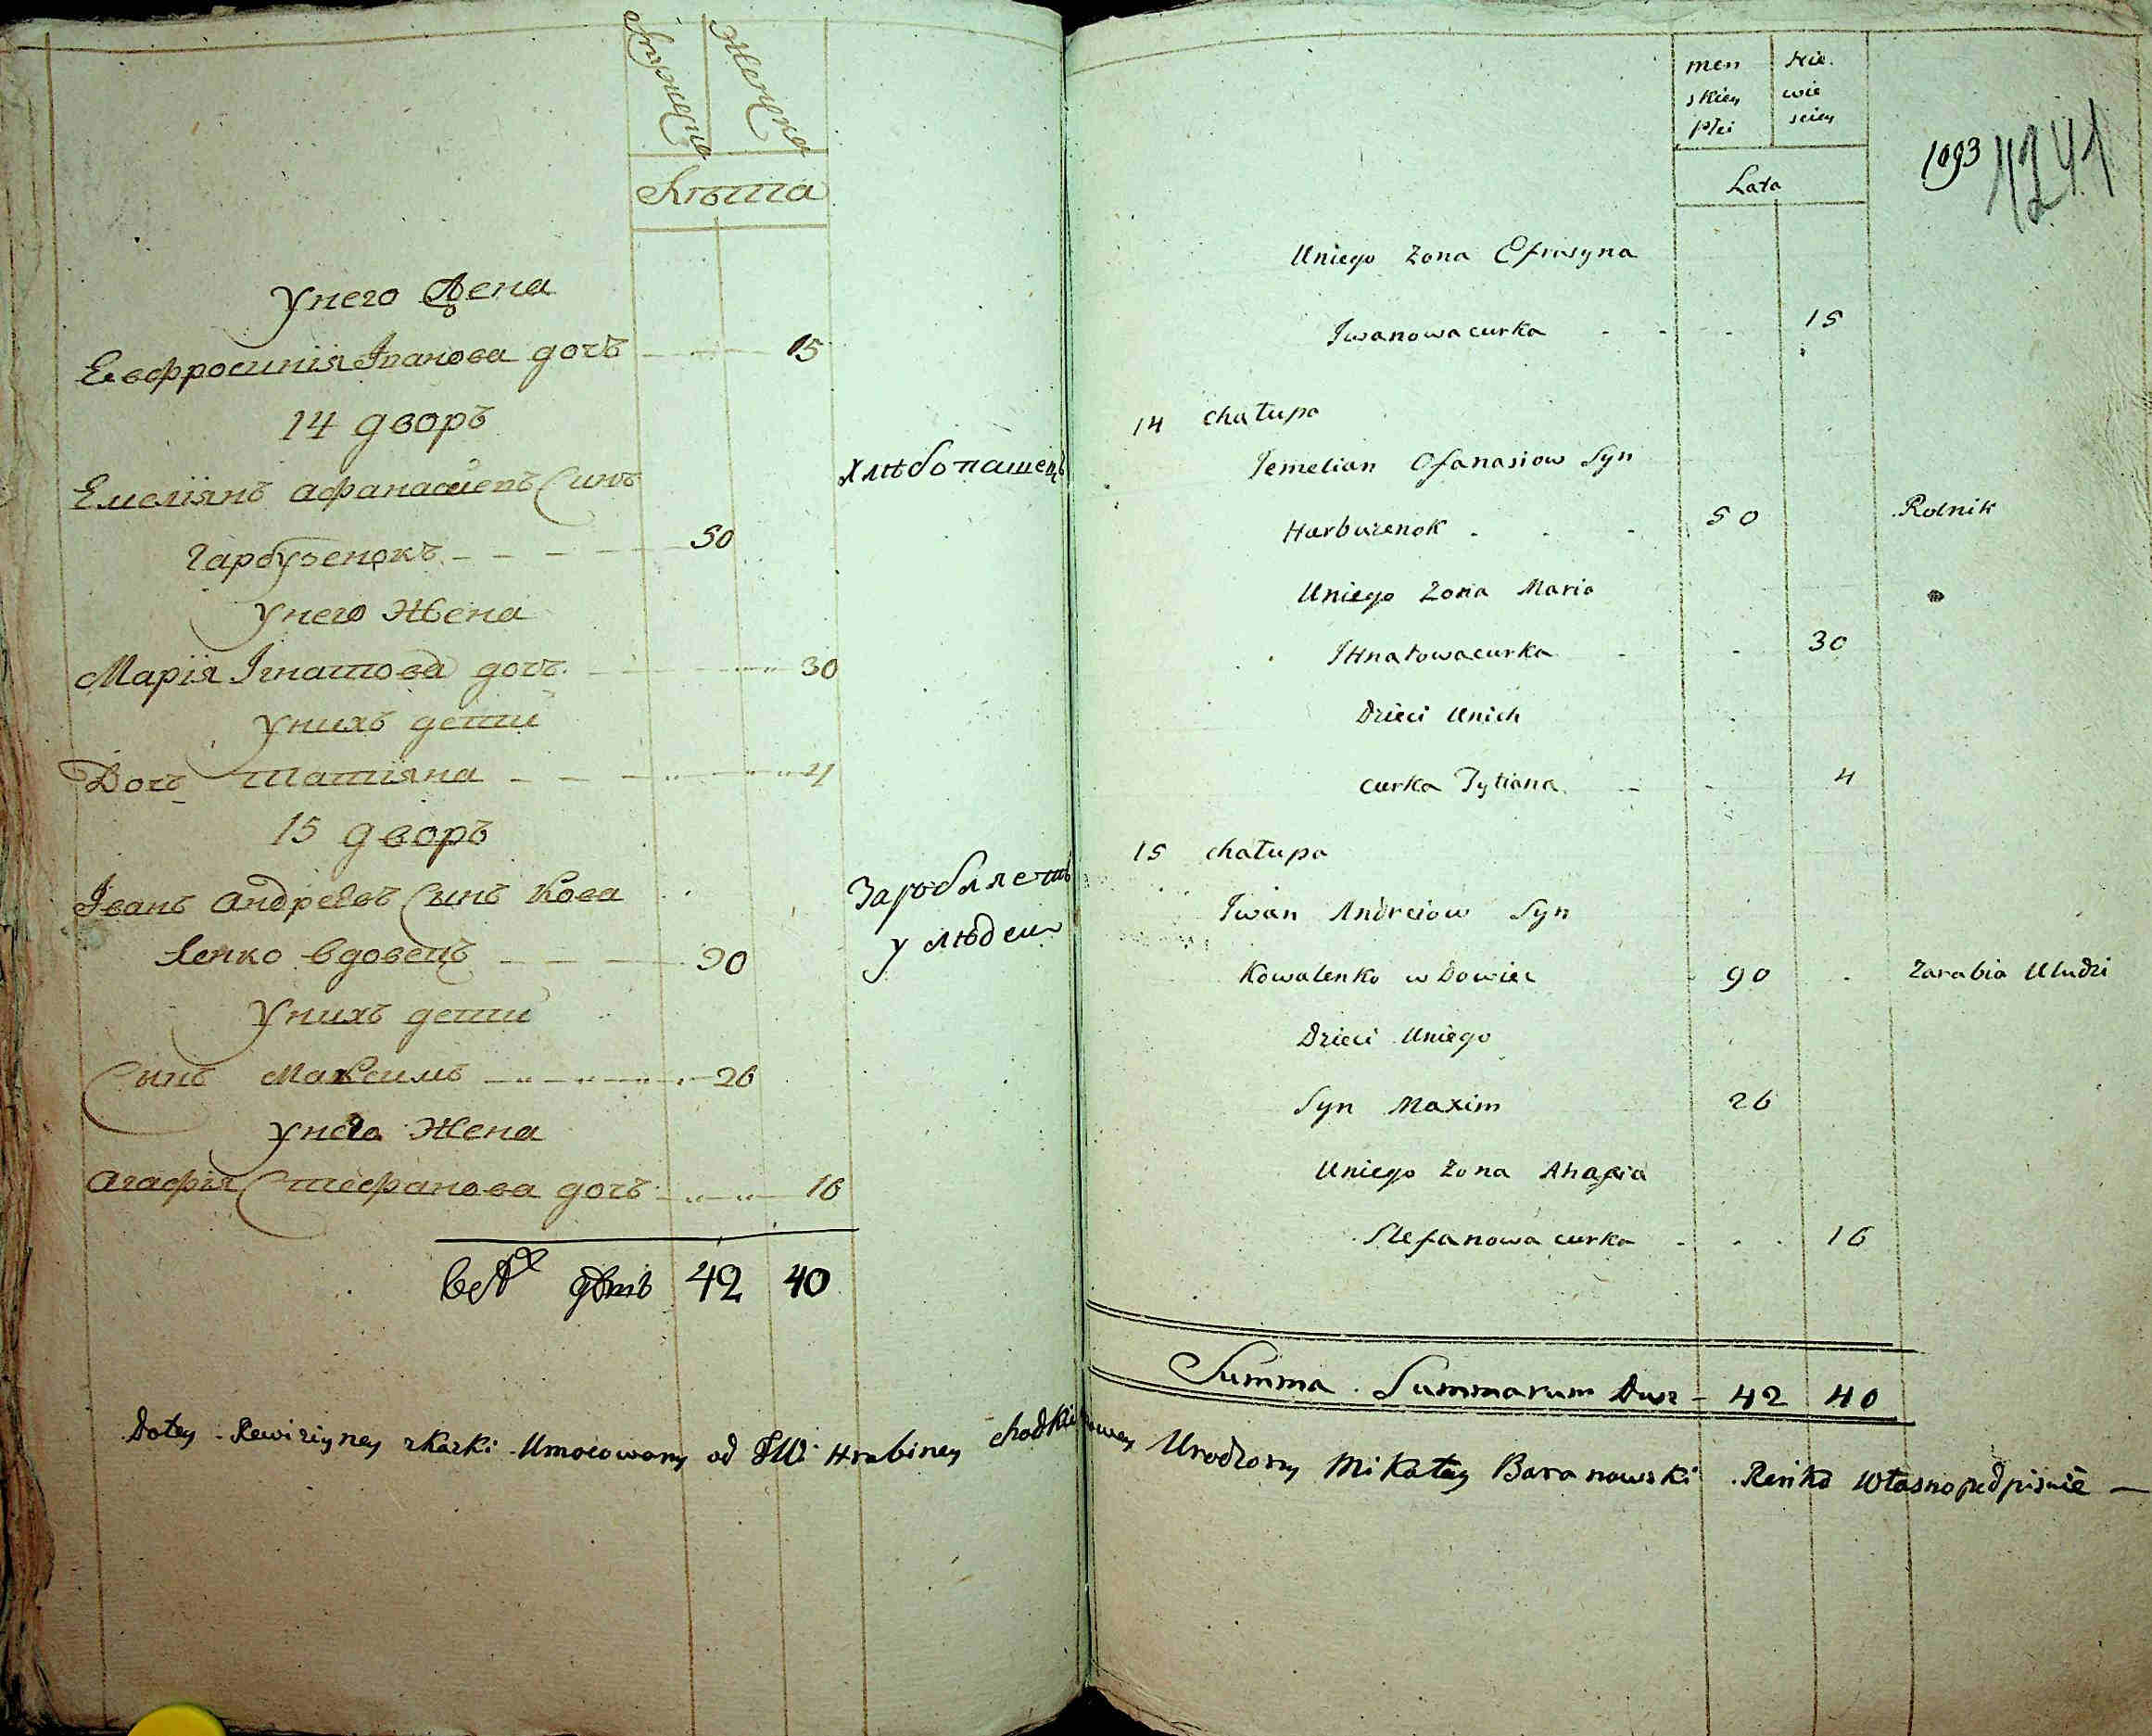 Мужеска
Женска
Лѣта
Унего Жена
Евфросинія Іванова дочъ 15
14 дворъ
Емеліянъ афанасіевъ Синъ
хлѣбопашецъ
гарбузенокъ 50
Унего Жена
Марія Ігнатова дочъ 30
Унихъ дети
Дочъ татіяна 4
15 дворъ
Іванъ андреевъ Сынъ Кова
ленко вдовецъ 90
Заробляетъ
у людей
Унихъ дети
Сынъ Максимъ 26
Унего Жена
агафія Стефанова дочъ 16
42 40
men
skiey
płci
Nie
wie
sciey
Lata
1093
1241
Uniego Zona Efrosyna
Iwanowa curka 15
14 chałupa
Jemelian Ofanasiow Syn
Harbuzenok 50 Rolnik
Uniego Zona Maria
IHnatowa curka 30
Dzieci Unich
curka Tytiana 4
15 chałupa
Iwan Andreiow Syn
Kowalenko wDowiec 90 Zarabia Uludzi
Dzieci Uniego
Syn Maxim 26
Uniego Zona Ahafia
Stefanowa curka 16
Summa Summarum Dusz 42 40
Dotey Rewizyney skazki Umocowany od JW: Hrabiney chodkiewiczowey Urodzony Mikołay Baranowski Ręnką Własno podpisuiē